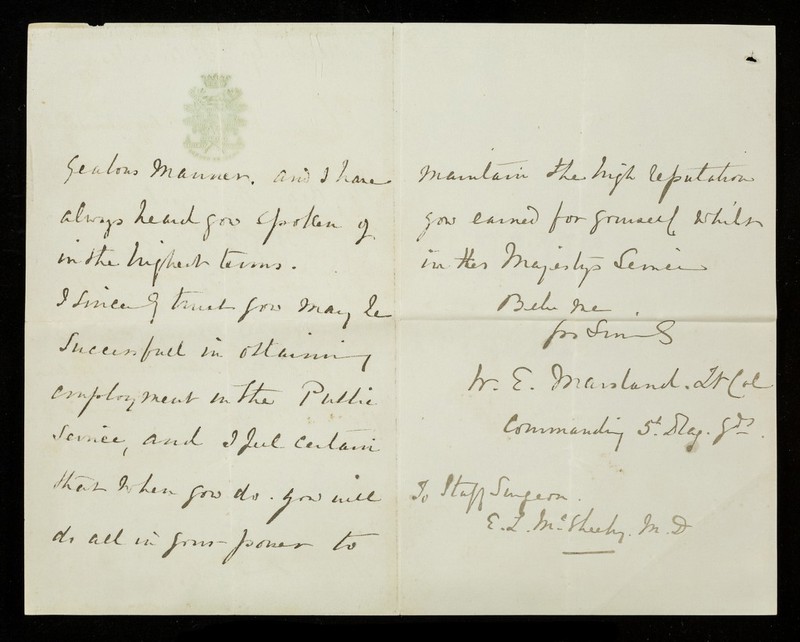 Zealous Manner. and I have
always heard you spoken of
in the highest terms.
I sincerely trust you may be
Successfull in obtaining
employment in the Public
Service, and I feel certain
that when you do. you will
do all in your power to
maintain the high reputation
you earned for yourself whilst
in Her Majestys Service
Belie me
yrs Sincerely
W. E. Marsland. Lt Col
Commanding 5t. Drag. Gds.
To Staff Surgeon.
E. L. McSheehy. M. D